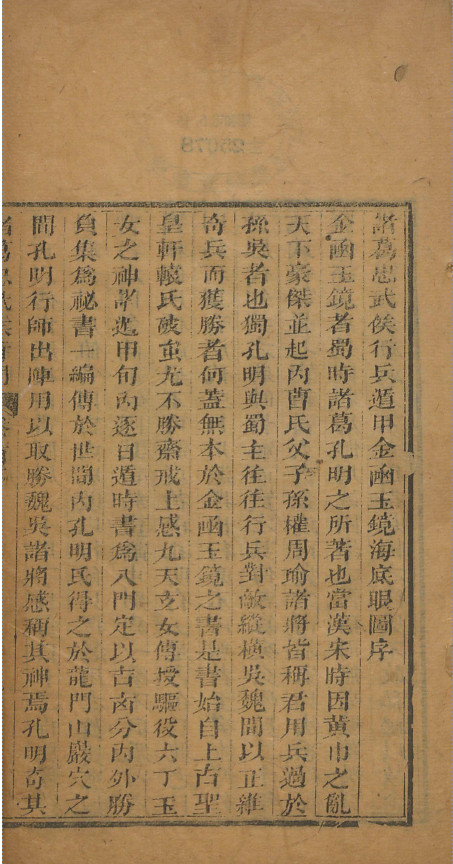 諸葛忠武侯行兵遁甲金函玉鏡海底眼圖序
金函玉鏡者蜀時諸葛孔明之所著也當漢末時因黄巾之亂
天下豪傑並起内曹氏父子孫權周瑜諸將皆稱君用兵過於
孫吳者也獨孔明與蜀主往往行兵對敵縱橫吳魏間以正維
奇兵而獲勝者何蓋無本於金函玉鏡之書是書始自上古聖
皇軒轅氏破蚩尤不勝齋戒上感九天玄女傳授驅役六丁玉
女之神諸遁甲旬内逐日遁時書爲八門定以吉凶分内外勝
負集爲祕書一編傳於世間内孔明氏得之於龍門山巖穴之
間孔明行師出陣用以取勝魏吳諸將感稱其神焉孔明奇其
25078